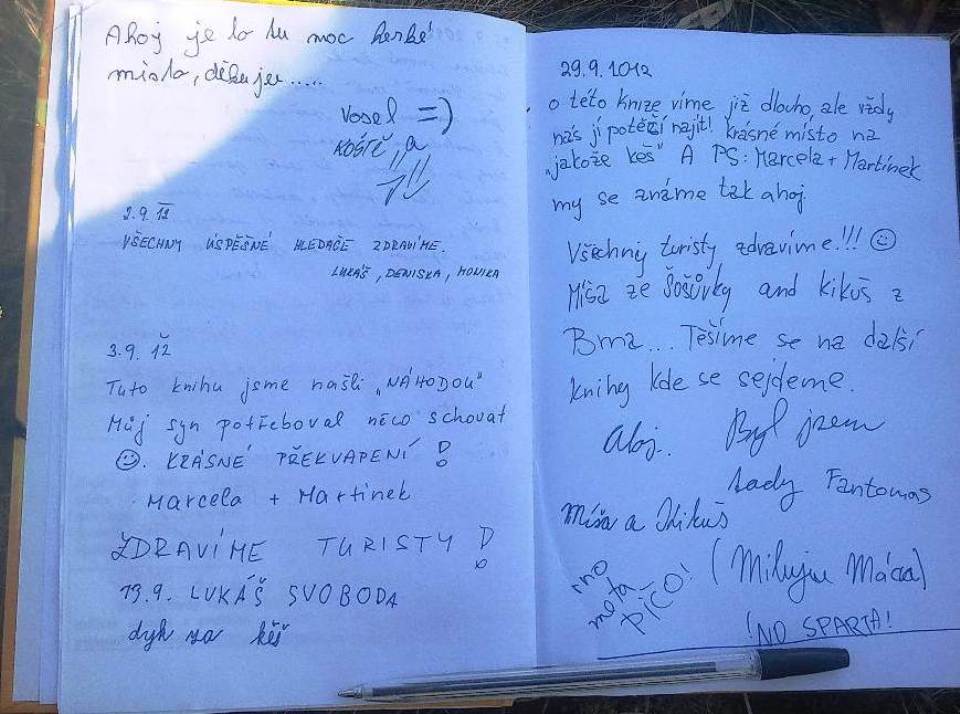 Ahoj je to tu moc hezké
místo, děkujeu.....
Vosel =)
KOŠTĚ a
2.9. 12
VŠECHNY ÚSPĚŠNÉ HLEDAČE ZDRAVÍME.
LUKÁŠ, DENISKA, MONIKA
3.9. 12
Tuto knihu jsme našli „NÁHODOU"
Můj syn potřeboval něco schovat
☺. KRÁSNÉ PŘEKVAPENÍ !
Marcela + Martinek
ZDRAVÍME TURISTY !
13.9. LUKÁŠ SVOBODA
dyk za keš
29.9.1012
o této knize víme již dlouho, ale vždy
nás jí potěší najít! krásné místo na
„jakože keš" A PS: Marcela + Martínek
my se známe tak ahoj.
Všechny turisty zdravíme!!! ☺
Míša ze Šošůvky and kikuš z
Brna... Těšíme se na další
knihy kde se sejdeme.
Ahoj.
Míša a Kikuš
Byl jsem
tady Fantomas
(Miluju Máca)
!NO SPARTA!
mno
ne ta
PÍČO!